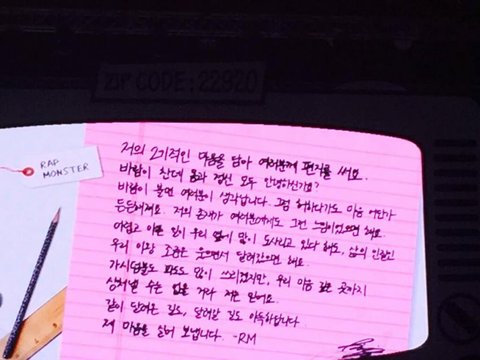 ZIP CODE: 22920
RAP
MONSTER
저의 2기적인 마음을 담아 여러분께 편지를 써요.
바람이 찬데 몸과 정신 모두 안녕하신가요?
바람이 불면 여러분이 생각납니다. 그럼 허하다가도 마음 어딘가
든든해져요. 저의 존재가 여러분에게도 그런 느낌이었으면 해요.
어렵고 아픈 일이 우리 옆에 많이 도사리고 있다 해도, 삶의
우리 이랑 조금은 웃으면서 달려갔으면 해요.
가시덤불도 파도도 많이 쓰리겠지만, 우리 마음 깊은 곳까지
상처낼 수는 없을 거라 저는 믿어요.
같이 달려온 길도, 달려갈 길도 아득하답니다.
제 마음을 실어 보냅니다. -RM